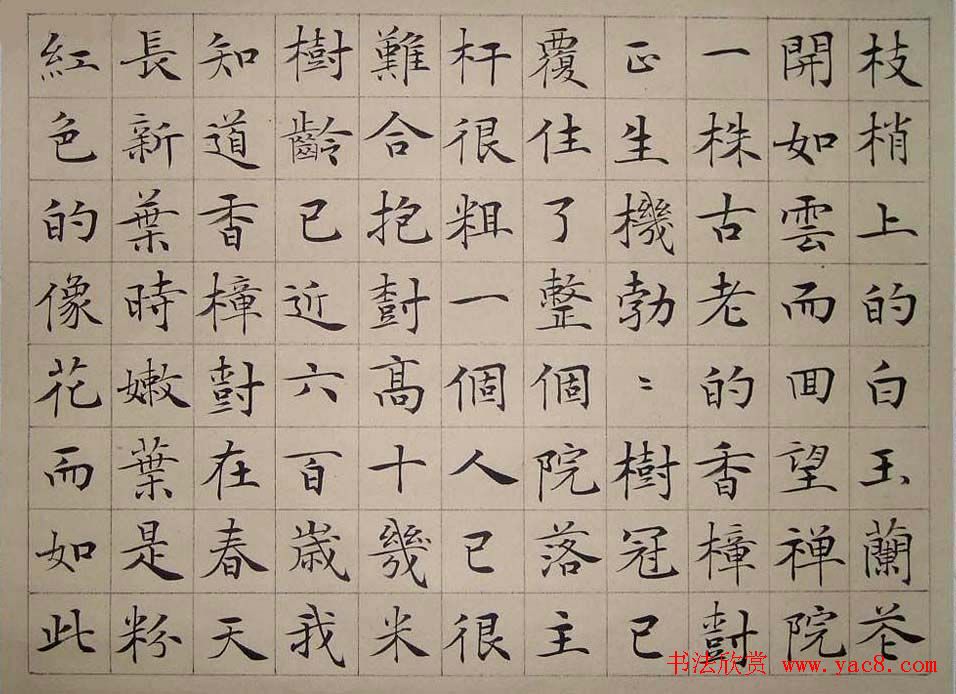 枝梢上的白玉蘭花
開如雲而囬望禅院
一株古老的香樟樹
正生機勃〻樹冠已
覆住了整個院落主
杆很粗一個人已很
難合抱樹高十幾米
樹齡已近六百歲我
知道香樟樹在春天
長新葉時嫩葉是粉
紅色的像花而如此
书法欣赏 www.yac8.com